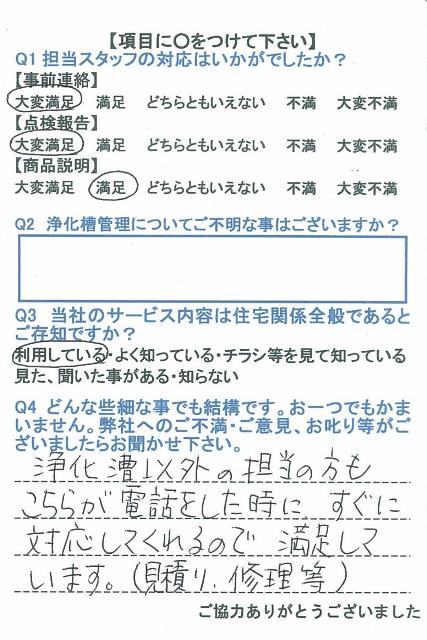 【項目に〇をつけて下さい】
Q1 担当スタッフの対応はいかがでしたか？
【事前連絡】
大変満足 満足 どちらともいえない 不満 大変不満
【点検報告】
大変満足 満足 どちらともいえない 不満 大変不満
【商品説明】
大変満足 満足 どちらともいえない 不満 大変不満
Q2 浄化槽管理についてご不明な事はございますか？
Q3 当社のサービス内容は住宅関係全般であると
ご存知ですか？
利用している・よく知っている・チラシ等を見て知っている
見た、聞いた事がある・知らない
Q4 どんな些細な事でも結構です。お一つでもかま
いません。弊社へのご不満・ご意見、お叱り等がご
ざいましたらお聞かせ下さい。
浄化漕以外の担当の方も
こちらが電話をした時に すぐに
対応してくれるので 満足して
います。(見積り、修理等)
ご協力ありがとうございました